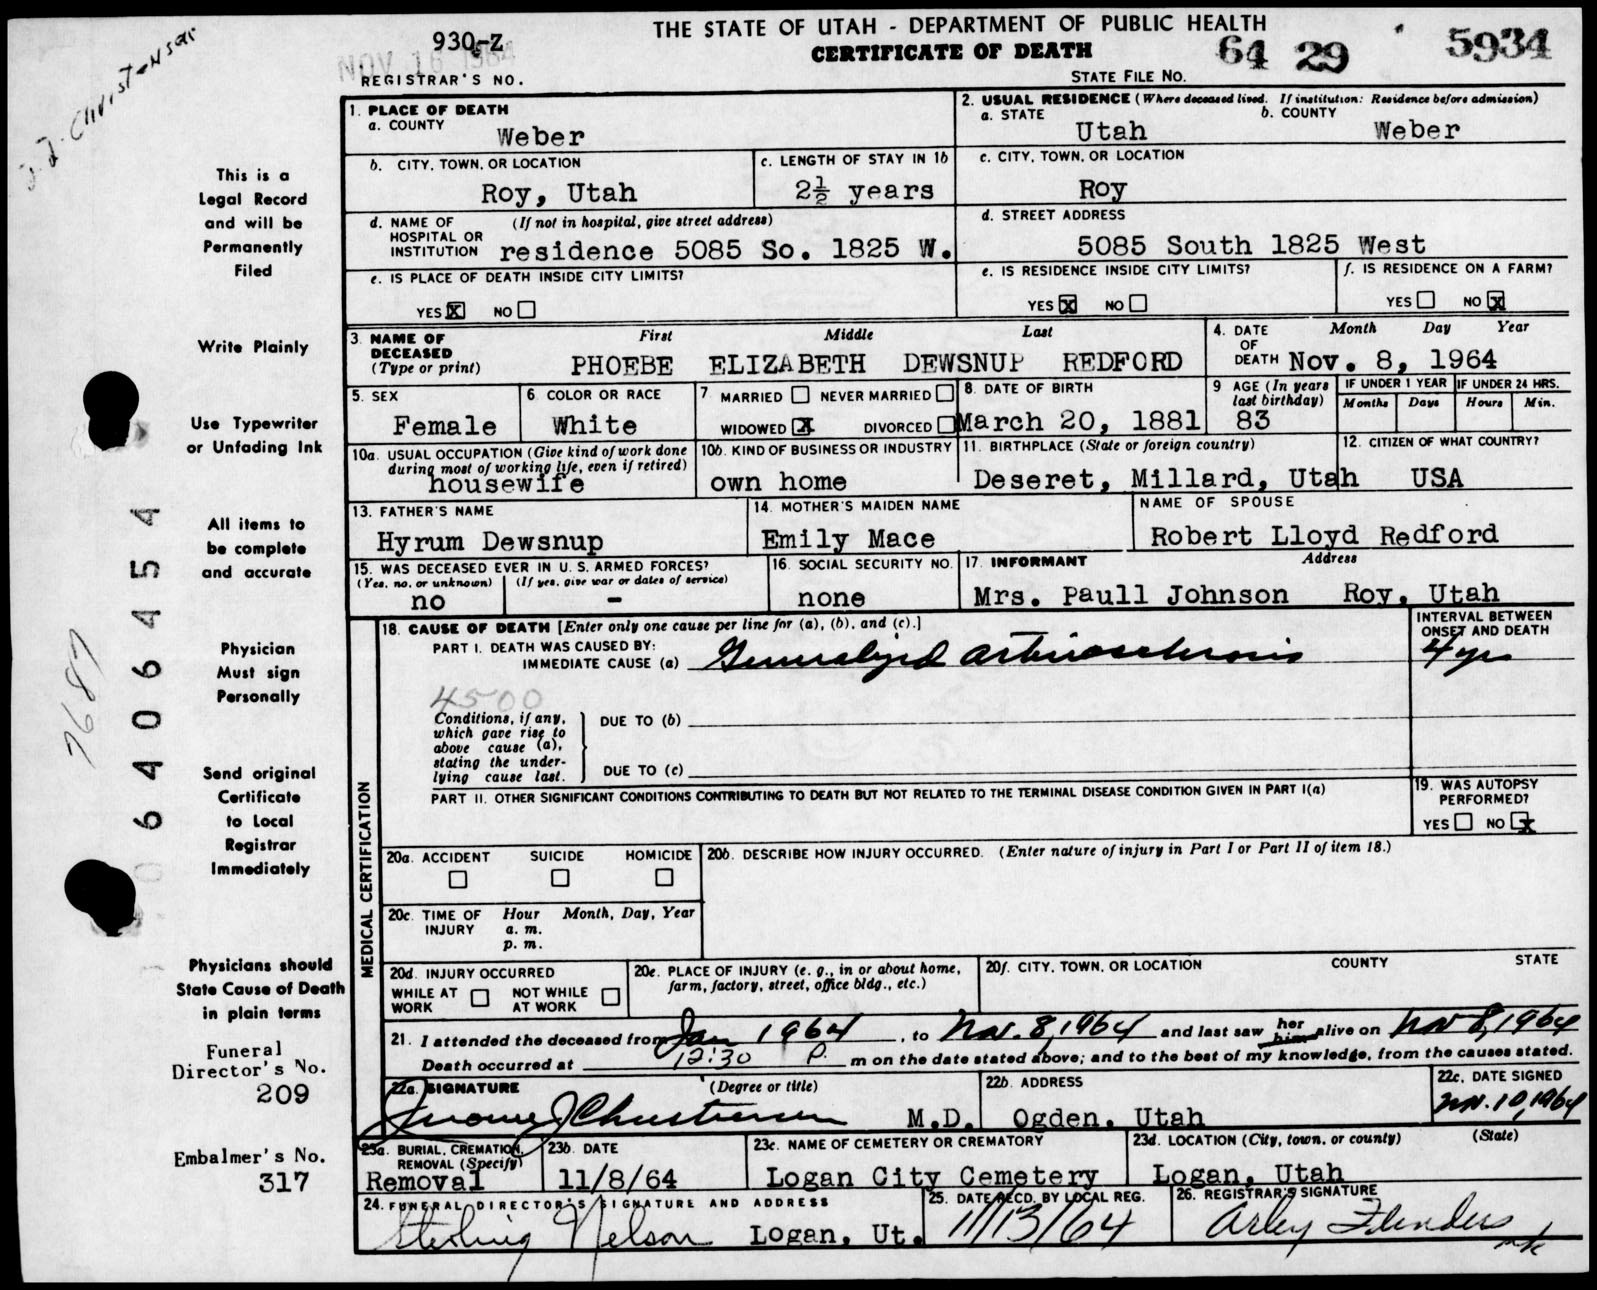 THE STATE OF UTAH - DEPARTMENT OF PUBLIC HEALTH
CERTIFICATE OF DEATH
930-Z
NOV 16 1964
REGISTRAR'S NO.
STATE FILE NO.
64 29 5934
J. J. Christensen
This is a
Legal Record
and will be
Permanently
Filed
Write Plainly
Use Typewriter
or Unfading Ink
All items to
be complete
and accurate
Physician
Must sign
Personally
Send original
Certificate
to Local
Registrar
Immediately
Physicians should
State Cause of Death
in plain terms
Funeral
Director's No.
209
Embalmer's No.
317
7687
6406454
1. PLACE OF DEATH
a. COUNTY
Weber
2. USUAL RESIDENCE (Where deceased lived. If institution: Residence before admission)
a. STATE
Utah
b. COUNTY
Weber
b. CITY, TOWN, OR LOCATION
Roy, Utah
c. LENGTH OF STAY IN 1b
2½ years
c. CITY, TOWN, OR LOCATION
Roy
d. NAME OF HOSPITAL OR INSTITUTION
(If not in hospital, give street address)
residence 5085 So. 1825 W.
d. STREET ADDRESS
5085 South 1825 West
e. IS PLACE OF DEATH INSIDE CITY LIMITS?
YES X NO
e. IS RESIDENCE INSIDE CITY LIMITS?
YES X NO
f. IS RESIDENCE ON A FARM?
YES NO X
3. NAME OF DECEASED
(Type or print)
First Middle Last
PHOEBE ELIZABETH DEWSNUP REDFORD
4. DATE OF DEATH
Month Day Year
Nov. 8, 1964
5. SEX
Female
6 COLOR OR RACE
White
7 MARRIED NEVER MARRIED
WIDOWED X DIVORCED
8. DATE OF BIRTH
March 20, 1881
9 AGE (In years last birthday)
83
IF UNDER 1 YEAR
Months Days
IF UNDER 24 HRS.
Hours Min.
10a. USUAL OCCUPATION (Give kind of work done
during most of working life, even if retired)
housewife
10b. KIND OF BUSINESS OR INDUSTRY
own home
11. BIRTHPLACE (State or foreign country)
Deseret, Millard, Utah
12. CITIZEN OF WHAT COUNTRY?
USA
13. FATHER'S NAME
Hyrum Dewsnup
14. MOTHER'S MAIDEN NAME
Emily Mace
NAME OF SPOUSE
Robert Lloyd Redford
15. WAS DECEASED EVER IN U. S. ARMED FORCES?
(Yes, no, or unknown) (If yes, give war or dates of service)
no -
16. SOCIAL SECURITY NO.
none
17. INFORMANT Address
Mrs. Paull Johnson Roy, Utah
MEDICAL CERTIFICATION
18. CAUSE OF DEATH [Enter only one cause per line for (a), (b), and (c).]
INTERVAL BETWEEN
ONSET AND DEATH
PART I. DEATH WAS CAUSED BY:
IMMEDIATE CAUSE (a) Generalized arteriosclerosis 4 yrs
4500
Conditions, if any,
which gave rise to
above cause (a),
stating the under-
lying cause last.
DUE TO (b)
DUE TO (c)
PART II. OTHER SIGNIFICANT CONDITIONS CONTRIBUTING TO DEATH BUT NOT RELATED TO THE TERMINAL DISEASE CONDITION GIVEN IN PART I(a)
19. WAS AUTOPSY
PERFORMED?
YES NO X
20a. ACCIDENT SUICIDE HOMICIDE
20b. DESCRIBE HOW INJURY OCCURRED. (Enter nature of injury in Part I or Part II of item 18.)
20c. TIME OF INJURY
Hour Month, Day, Year
a. m.
p. m.
20d. INJURY OCCURRED
WHILE AT WORK NOT WHILE AT WORK
20e. PLACE OF INJURY (e. g., in or about home,
farm, factory, street, office bldg., etc.)
20f. CITY, TOWN, OR LOCATION COUNTY STATE
21. I attended the deceased from Jan 1964, to Nov. 8, 1964 and last saw her him alive on Nov 8, 1964
Death occurred at 12:30 P. m on the date stated above; and to the best of my knowledge, from the causes stated.
22a. SIGNATURE (Degree or title)
Jerome J Christensen M.D.
22b. ADDRESS
Ogden, Utah
22c. DATE SIGNED
Nov. 10, 1964
23a. BURIAL, CREMATION,
REMOVAL (Specify)
Removal
23b DATE
11/8/64
23c. NAME OF CEMETERY OR CREMATORY
Logan City Cemetery
23d. LOCATION (City, town, or county) (State)
Logan, Utah
24. FUNERAL DIRECTOR'S SIGNATURE AND ADDRESS
Sterling Nelson Logan, Ut.
25. DATE RECD. BY LOCAL REG.
11/13/64
26. REGISTRAR'S SIGNATURE
Arley Flinders
mk